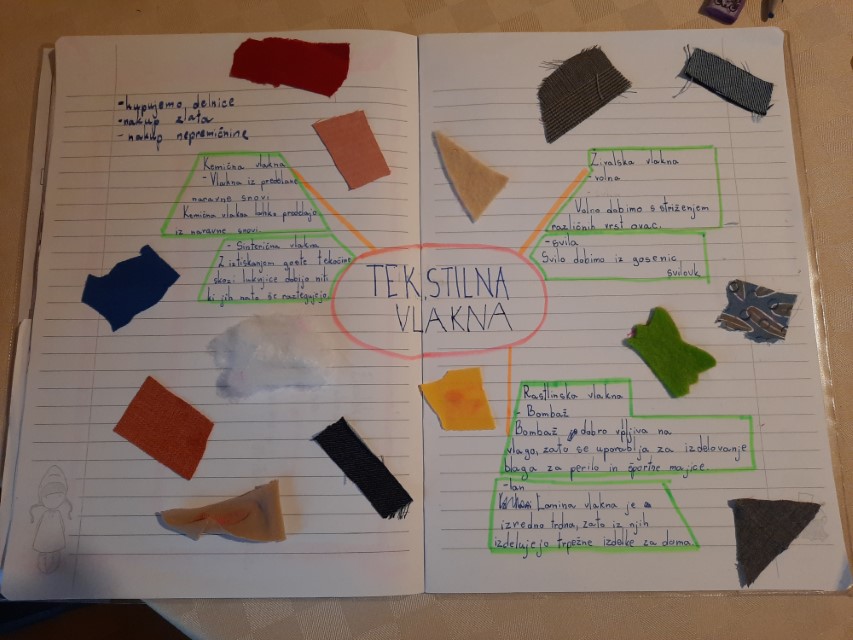 - kupujemo delnice
- nakup zlata
- nakup nepremičnine
Kemična vlakna
- Vlakna iz predelane
naravne snovi
Kemična vlakna lahko predelajo
iz naravne snovi.
- Sinterična vlakna
Z iztiskanjem goste tekočine
skozi luknjice dobijo niti
ki jih nato še raztegujejo
TEKSTILNA
VLAKNA
Živalska vlakna
- volna
Volno dobimo s striženjem
različnih vrst ovac.
- svila
Svilo dobimo iz gosenic
sviloprejk
Rastlinska vlakna
- Bombaž
Bombaž dobro vpliva na
vlago, zato se uporablja za izdelovanje
blaga za perilo in športne majice
- lan
Lanina vlakna je
izredno trdna, zato iz njih
izdelujejo trpežne izdelke za doma.